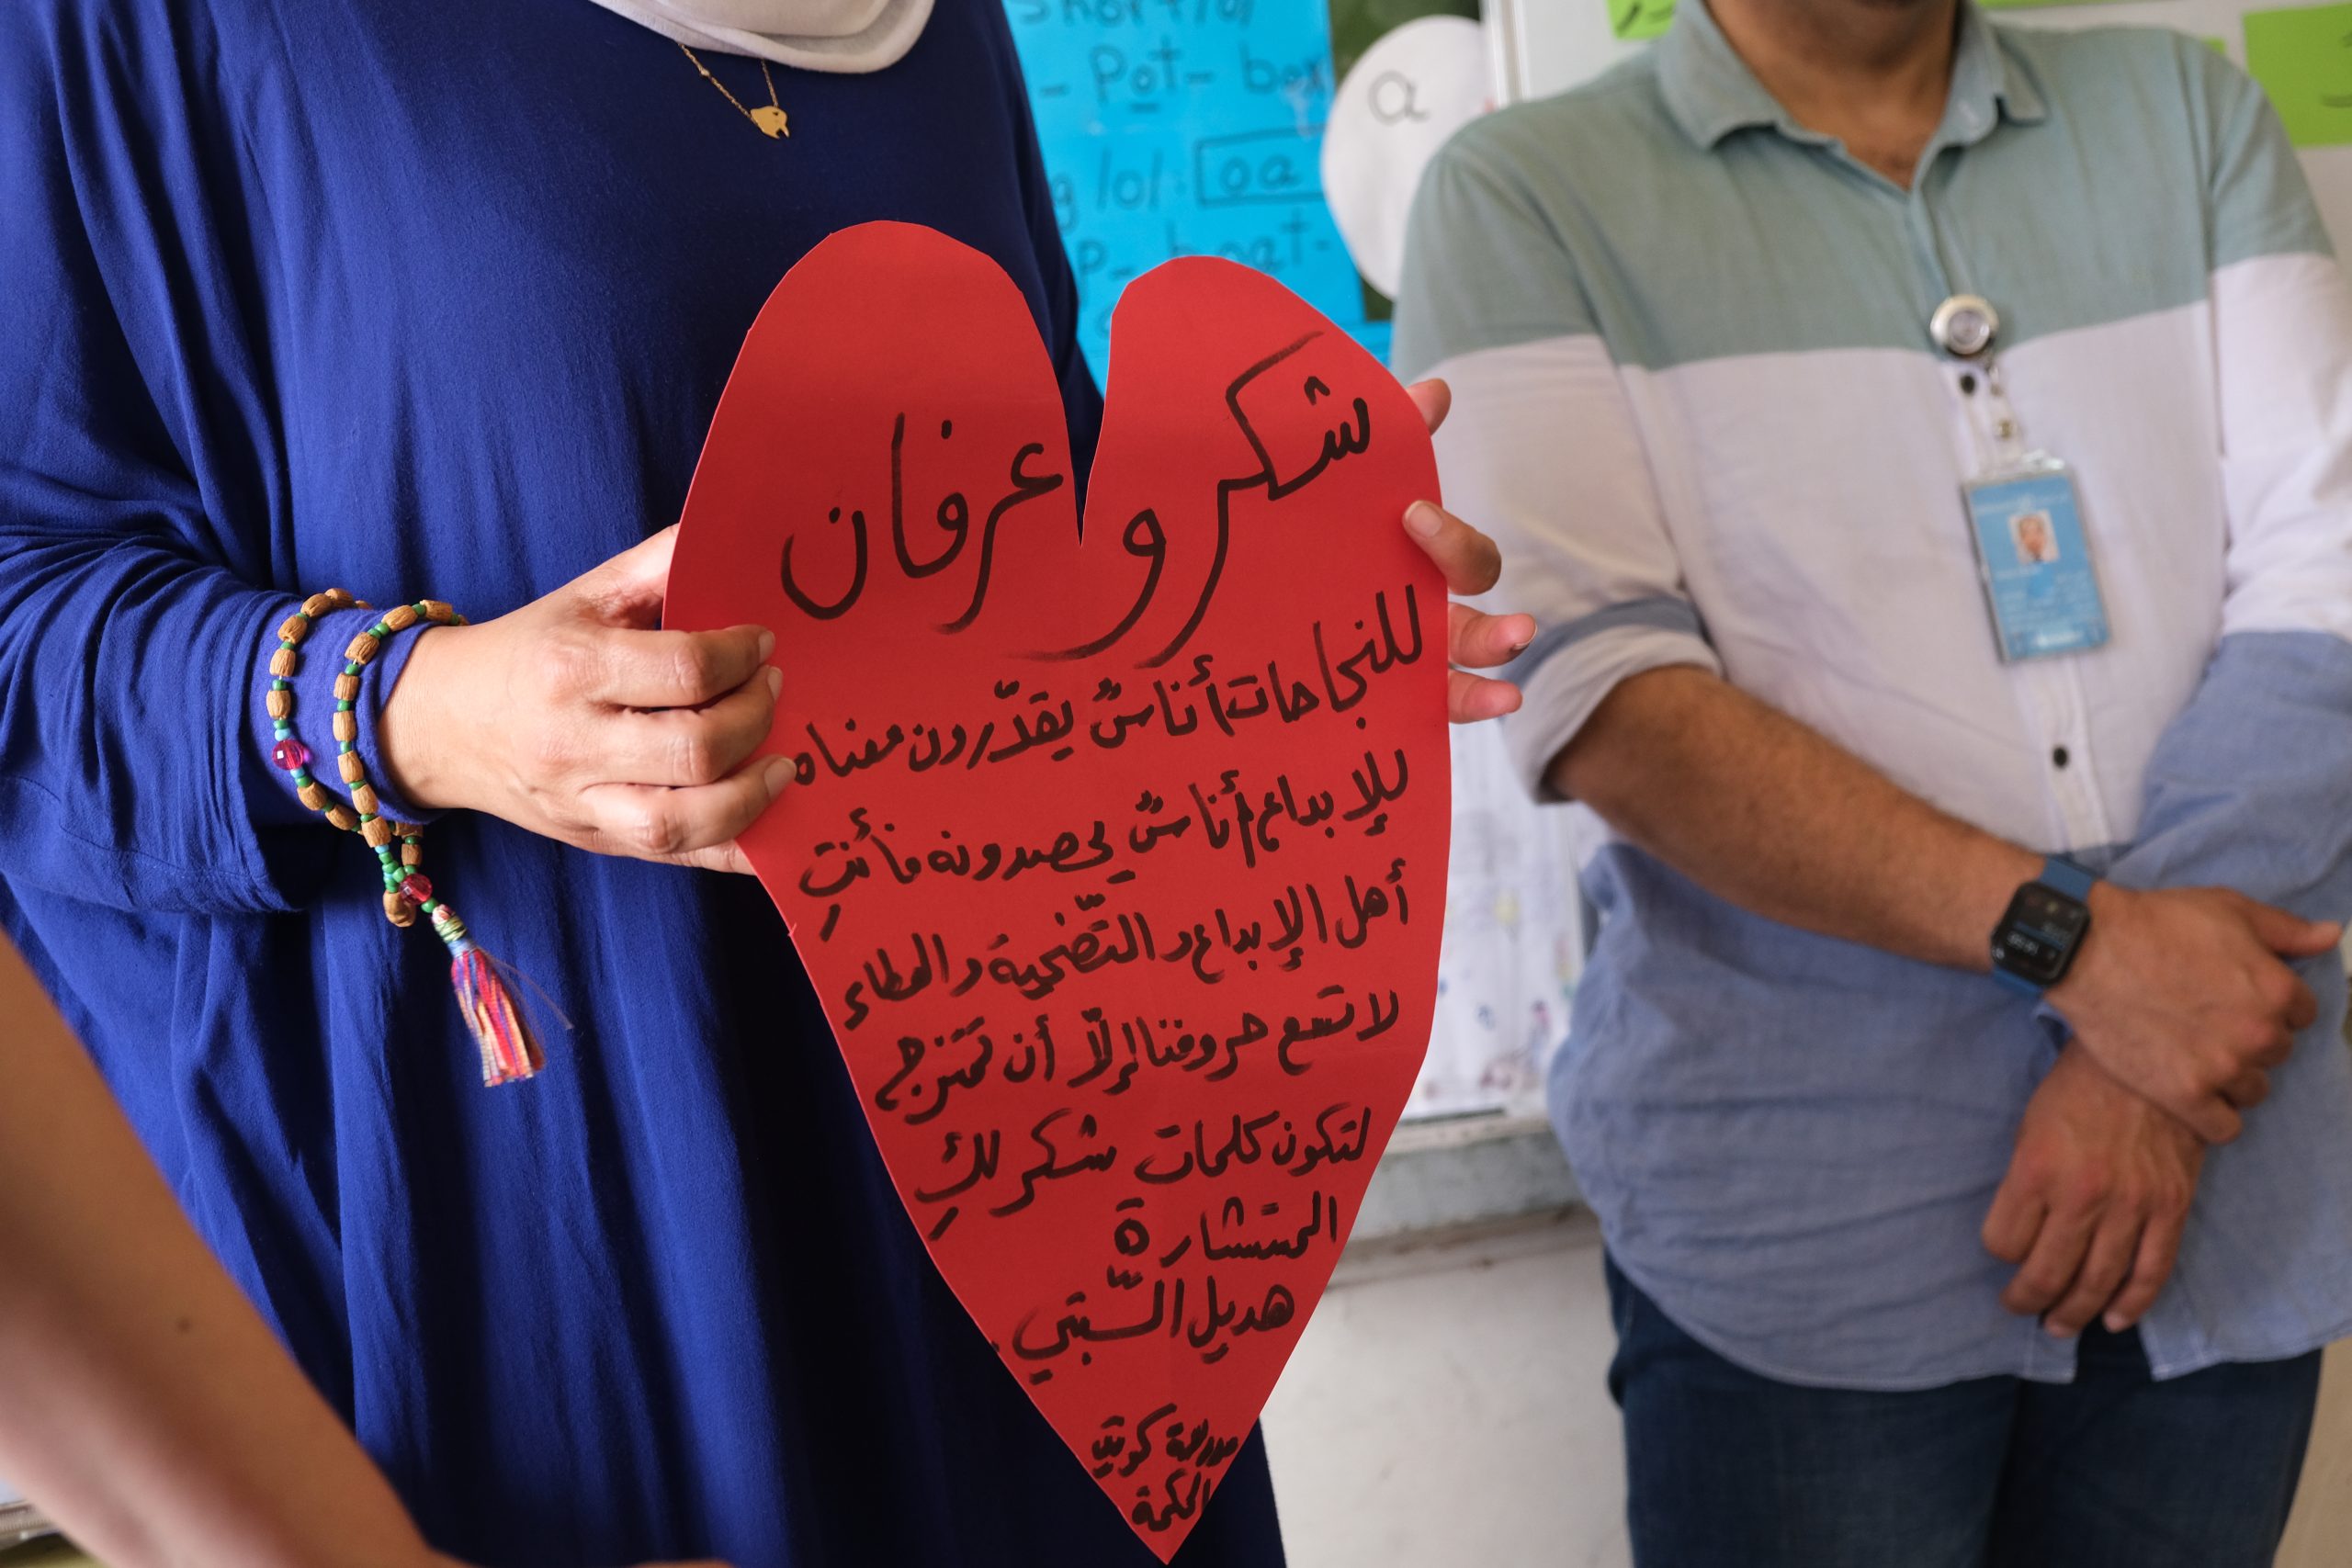 short /o/
- pot - box
a
g /o/: oa
p - boat -
شكر و عرفان
للنجاحات أناسٌ يقدّرون معناه
للإبداع أناسٌ يحصدونه فأنتِ
أهل الإبداع و التّضحية و العطاء
لا تسع حروفنا إلّا أن تمتزج
لتكون كلمات شكر لكِ
المستشارة
هديل السّبتي .
مدرسة كويت
الحكمة